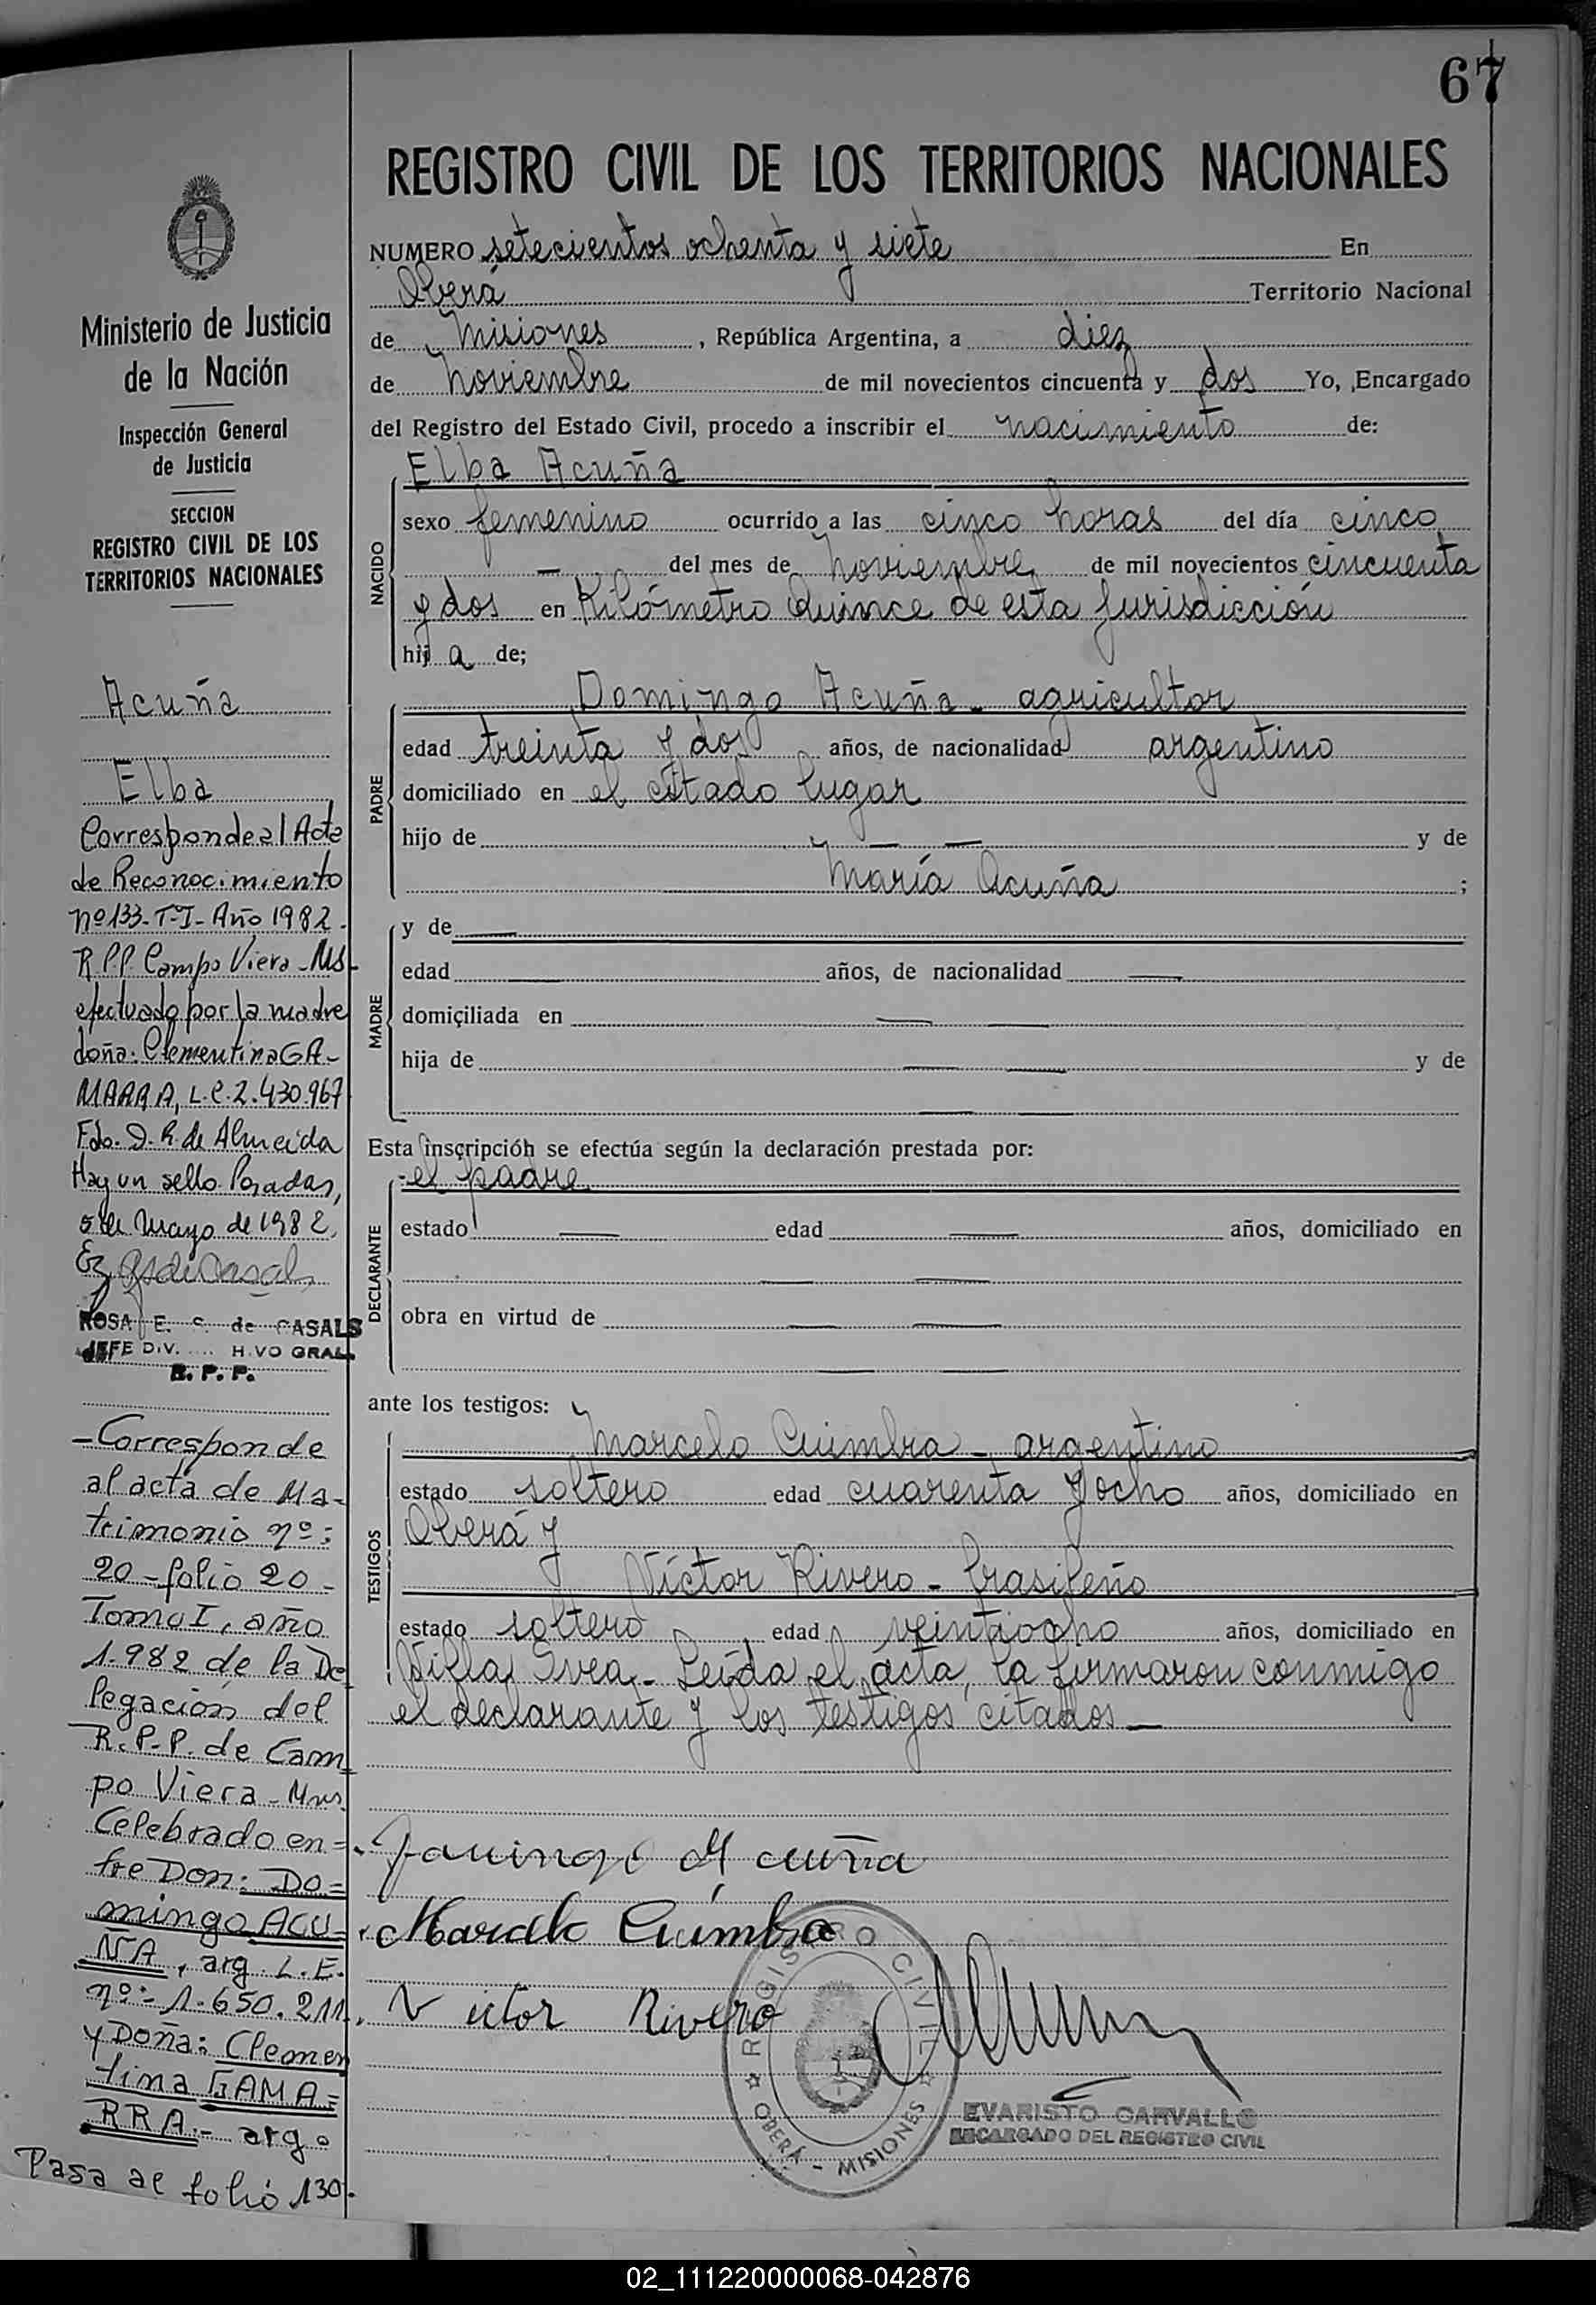 67
REGISTRO CIVIL DE LOS TERRITORIOS NACIONALES
NUMERO setecientos ochenta y siete En
Oberá Territorio Nacional
de Misiones, República Argentina, a diez
de noviembre de mil novecientos cincuenta y dos Yo, Encargado
del Registro del Estado Civil, procedo a inscribir el nacimiento de:
NACIDO
Elba Acuña
sexo femenino ocurrido a las cinco horas del día cinco
— del mes de noviembre de mil novecientos cincuenta
y dos en Kilómetro Quince de esta jurisdicción
hija de;
PADRE
Domingo Acuña - agricultor
edad treinta y dos años, de nacionalidad argentino
domiciliado en el citado lugar
hijo de — — y de
María Acuña ;
MADRE
y de —
edad — años, de nacionalidad —
domiciliada en — —
hija de — — y de
— —
Esta inscripción se efectúa según la declaración prestada por:
DECLARANTE
-el padre
estado — edad — años, domiciliado en
— —
obra en virtud de — —
— —
ante los testigos:
TESTIGOS
Marcelo Cuimbra - argentino
estado soltero edad cuarenta y ocho años, domiciliado en
Oberá y
Víctor Rivero - brasileño
estado soltero edad veintiocho años, domiciliado en
Villa Svea - Leída el acta, la firmaron conmigo
el declarante y los testigos citados —
Acuña
Marcelo Cuimbra
Victor Rivero
REGISTRO CIVIL
OBERÁ - MISIONES
EVARISTO CARVALLO
ENCARGADO DEL REGISTRO CIVIL
Ministerio de Justicia
de la Nación
Inspección General
de Justicia
SECCION
REGISTRO CIVIL DE LOS
TERRITORIOS NACIONALES
Acuña
Elba
Corresponde al Acta
de Reconocimiento
nº 133-T-I-Año 1982.
R.P.P. Campo Viera - Ms
efectuado por la madre
doña: Clementina GA-
MARRA, L.C. 2.430.967
Fdo. D. R. de Almeida
Hay un sello. Posadas,
5 de Mayo de 1982.
ROSA E. S. de CASALS
JEFE DIV. HIVO GRAL.
R. P. P.
-Corresponde
al acta de Ma-
trimonio nº:
20-folio 20-
Tomo I, año
1.982 de la De
legación del
R.P.P. de Cam
po Viera - Mns.
Celebrado en=
tre Don: DO=
mingo ACU=
ÑA, arg. L.E.
nº:- 1.650.211
y Doña: Clemen
tina GAMA=
RRA.- arg.
Pasa al folio 130.
02_111220000068-042876